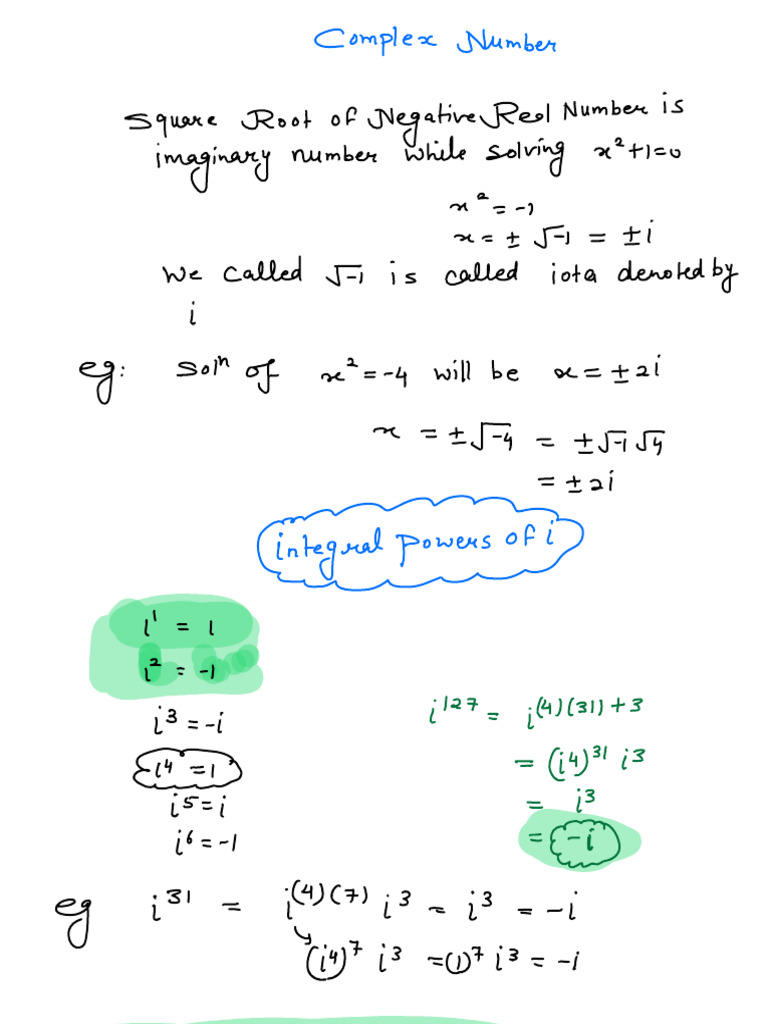 Complex Number
Square Root of Negative Real Number is
imaginary number while solving x²+1=0
x² = -1
x = ± √-1 = ±i
We called √-1 is called iota denoted by
i
eg: Solⁿ of x² = -4 will be x = ±2i
x = ±√-4 = ±√-1 √4
= ±2i
integral powers of i
i¹ = i
i² = -1
i³ = -i
i⁴ = 1
i⁵ = i
i⁶ = -1
i¹²⁷ = i⁽⁴⁾⁽³¹⁾⁺³
= (i⁴)³¹ i³
= i³
= -i
eg i³¹ = i⁽⁴⁾⁽⁷⁾ i³ = i³ = -i
(i⁴)⁷ i³ = (1)⁷ i³ = -i